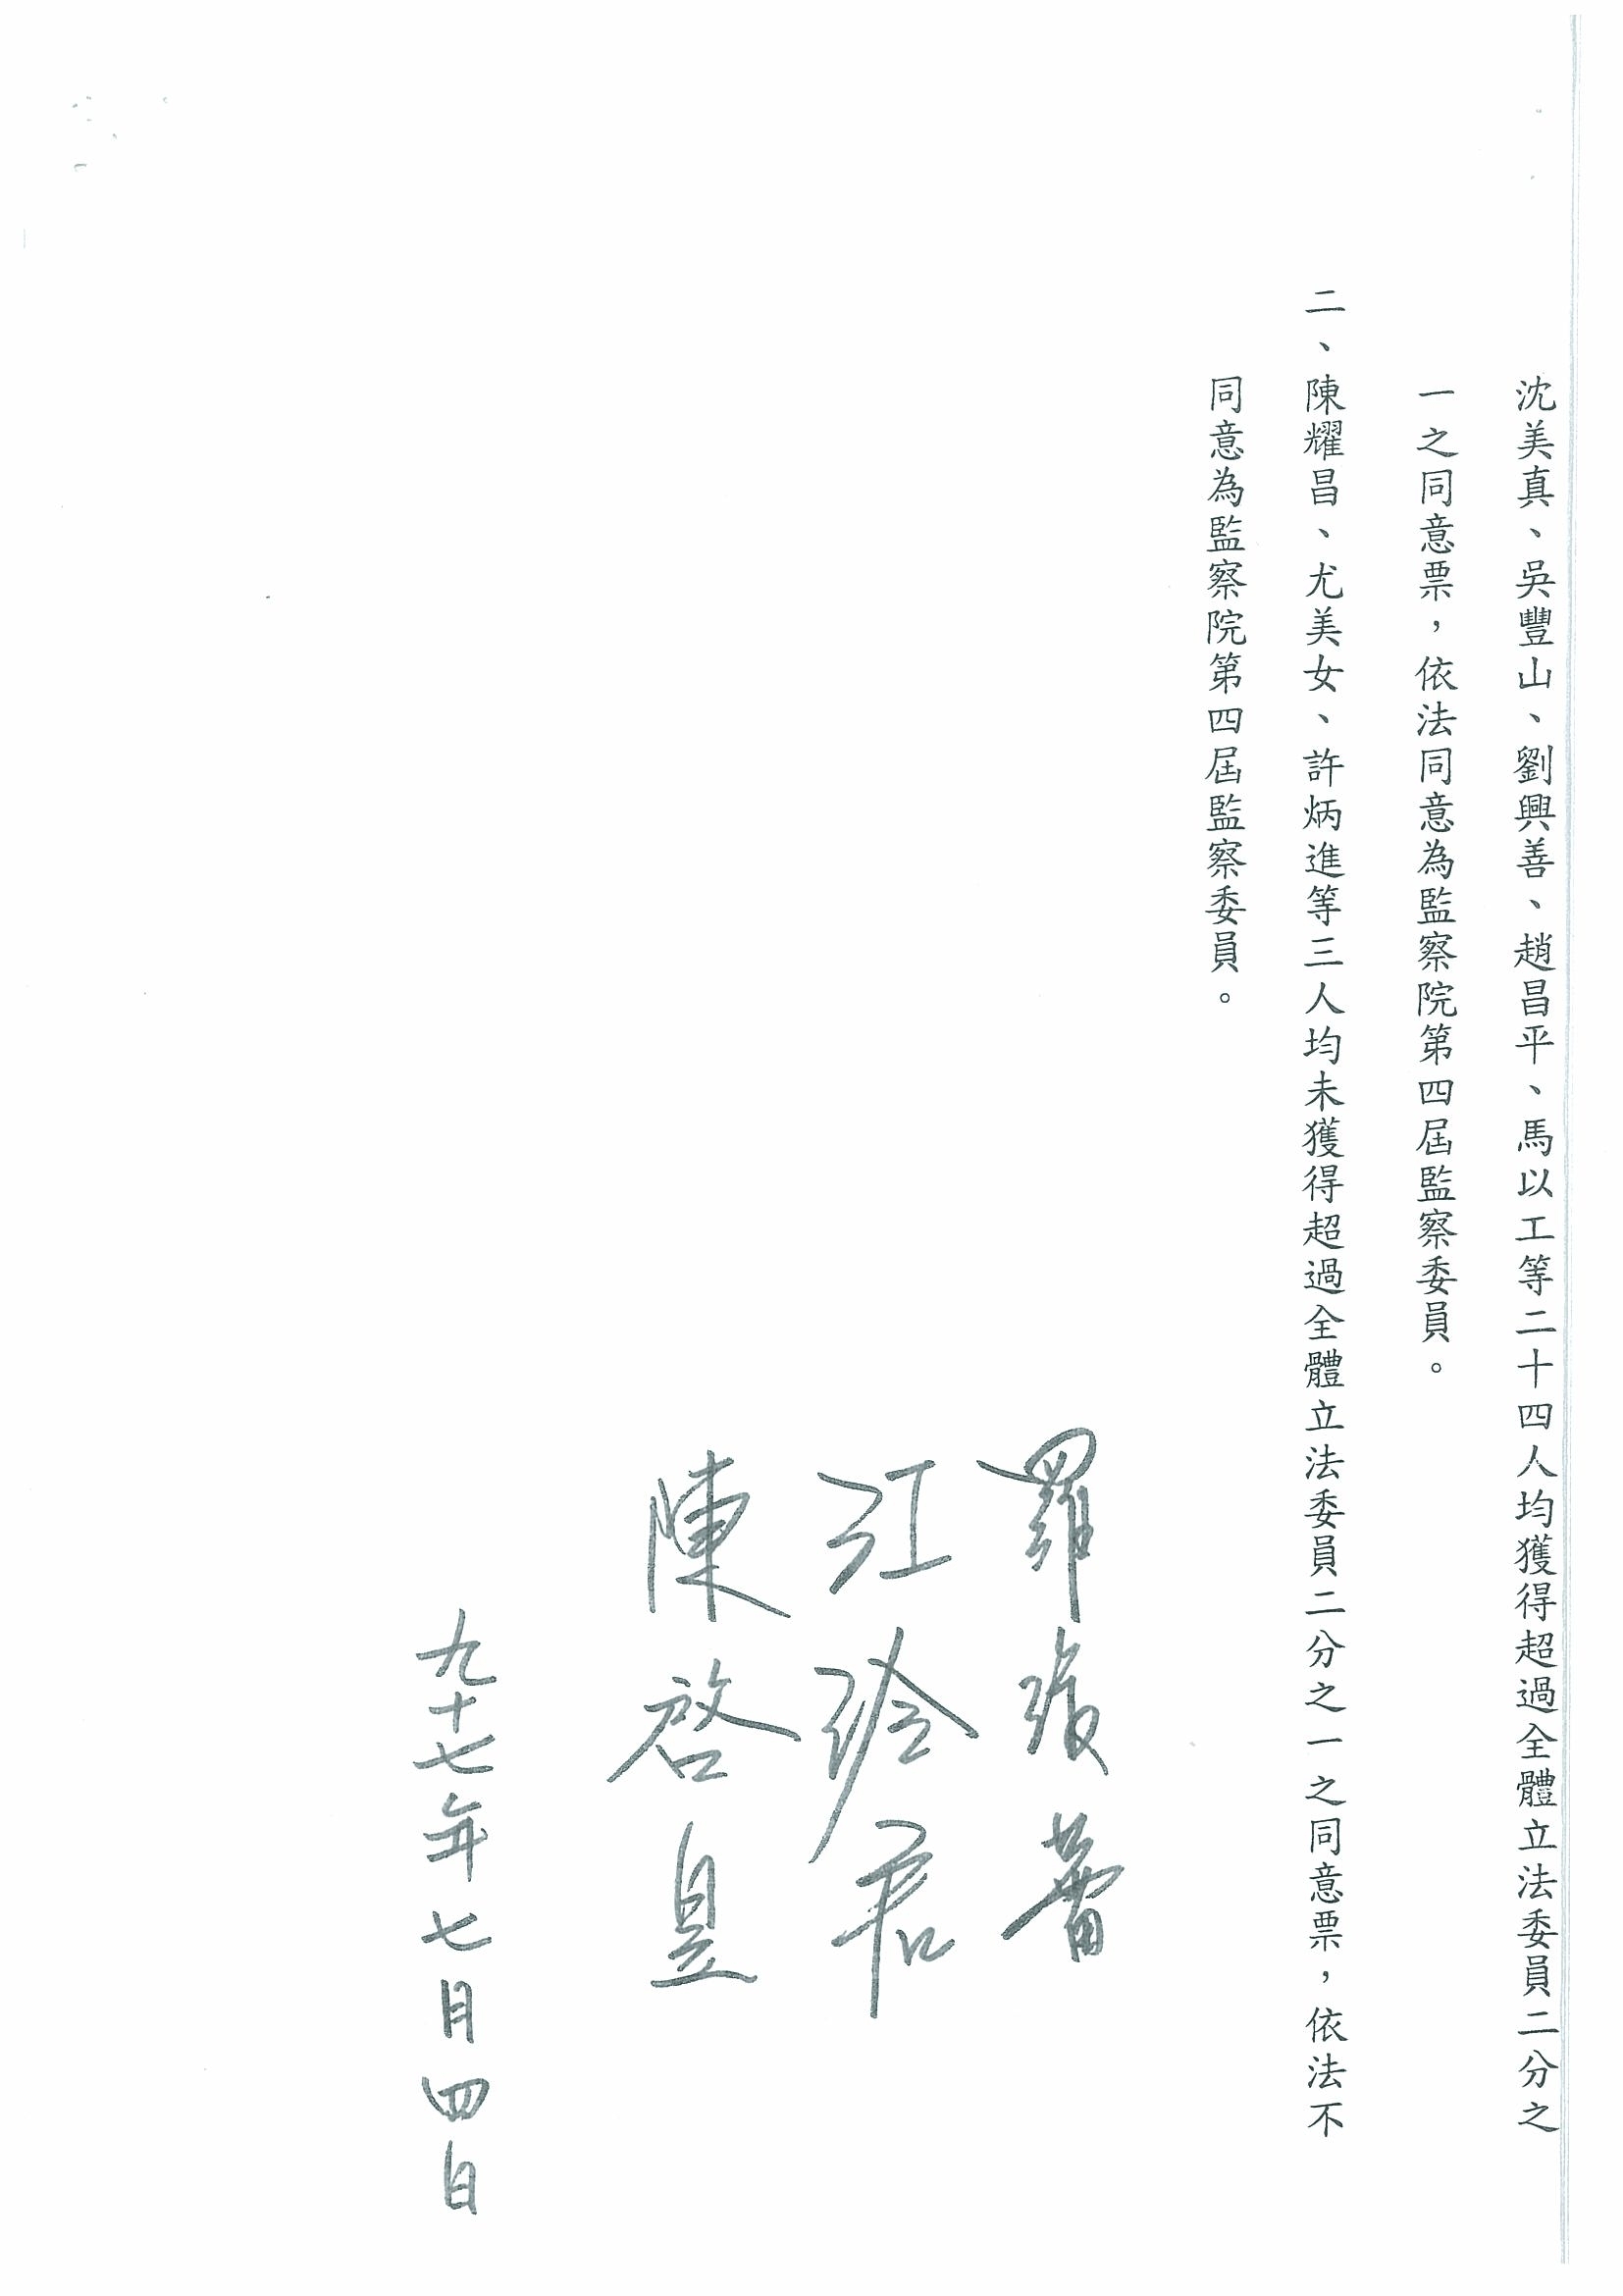 沈美真、吳豐山、劉興善、趙昌平、馬以工等二十四人均獲得超過全體立法委員二分之
一之同意票，依法同意為監察院第四屆監察委員。
二、陳耀昌、尤美女、許炳進等三人均未獲得超過全體立法委員二分之一之同意票，依法不
同意為監察院第四屆監察委員。
羅瓊蕾
江玲君
陳啓昱
九十七年七月四日